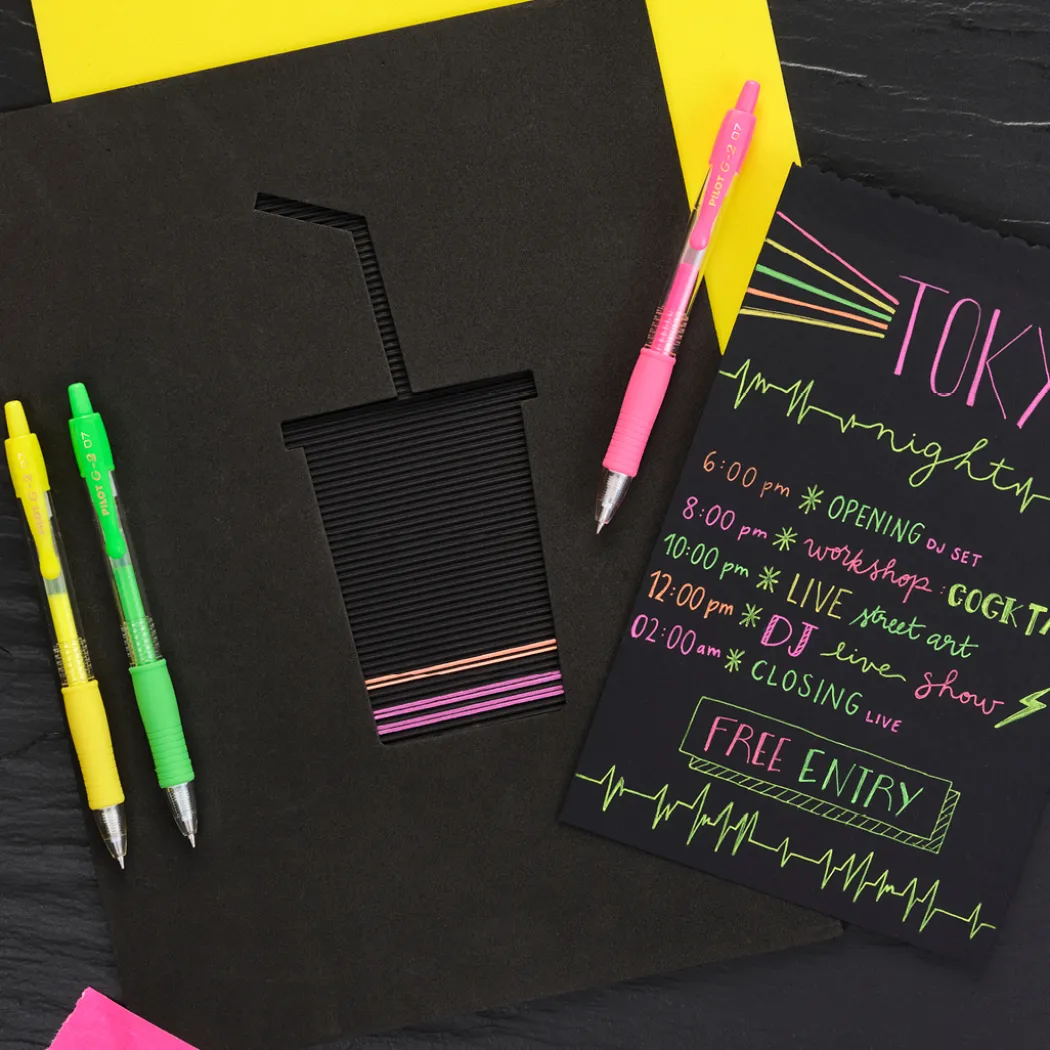 PILOT G-2 07
PILOT G-2 07
PILOT G-2 07
TOKY
nighty
6:00 pm * OPENING DJ SET
8:00 pm * workshop: COCKTA
10:00 pm * LIVE street art
12:00 pm * DJ live show
02:00 am * CLOSING LIVE
FREE ENTRY